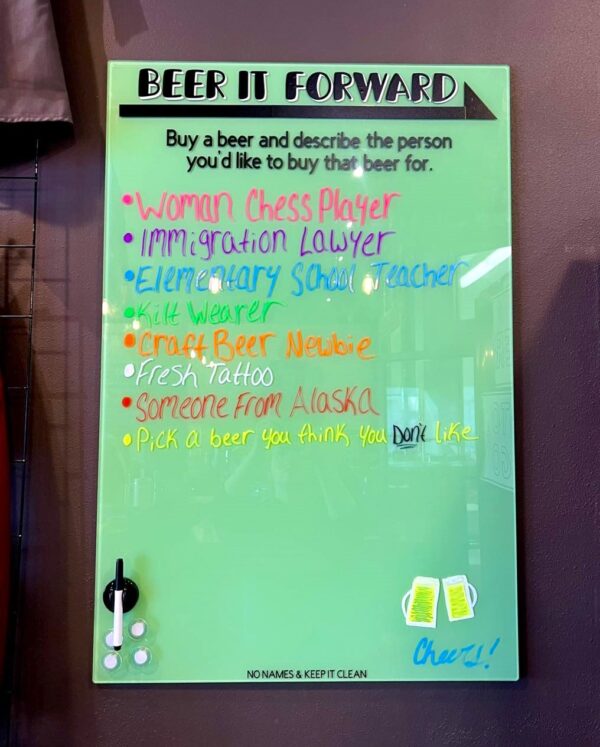 BEER IT FORWARD
Buy a beer and describe the person
you'd like to buy that beer for.
• Woman Chess Player
• Immigration Lawyer
• Elementary School Teacher
• Kilt Wearer
• Craft Beer Newbie
• Fresh Tattoo
• Someone From Alaska
• Pick a beer you think you Don't like
Cheers!
NO NAMES & KEEP IT CLEAN